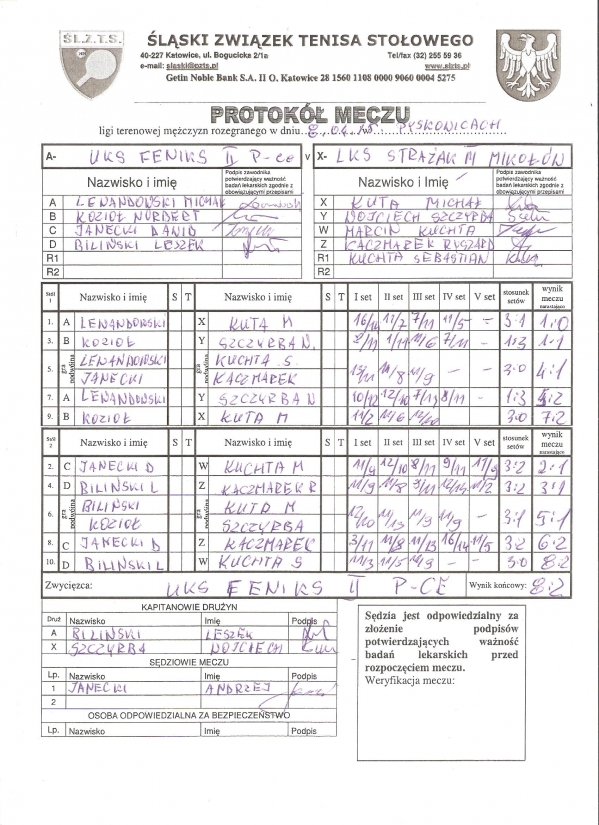 ŚL.Z.T.S.
ŚLĄSKI ZWIĄZEK TENISA STOŁOWEGO
40-227 Katowice, ul. Bogucicka 2/1a Tel/fax (32) 255 59 36
e-mail: slaski@pzts.pl www.slzts.pl
Getin Noble Bank S.A. II O. Katowice 28 1560 1108 0000 9060 0004 5275
PROTOKÓŁ MECZU
ligi terenowej mężczyzn rozegranego w dniu PYSKOWICACH
A- UKS FENIKS II P-ce v X- LKS STRAŻAK III MIKOŁÓW
Nazwisko i Imię Podpis zawodnika potwierdzający ważność badań lekarskich zgodnie z obowiązującymi przepisami Nazwisko i Imię Podpis zawodnika potwierdzający ważność badań lekarskich zgodnie z obowiązującymi przepisami
A LEWANDOWSKI MICHAŁ X KUTA MICHAŁ
B KOZIOŁ NORBERT Y WOJCIECH SZCZYRBA
C JANECKI DAWID W MARCIN KUCHTA
D BILIŃSKI LESZEK Z KACZMAREK RYSZARD
R1 R1 KUCHTA SEBASTIAN
R2 R2
Stół 1 Nazwisko i imię S T Nazwisko i imię S T I set II set III set IV set V set stosunek setów wynik meczu narastająco
1. A LEWANDOWSKI X KUTA M 16/14 7/11 11/5 - 3:1 1:0
3. B KOZIOŁ Y SZCZYRBA W. 1/11 11/6 7/11 - 1:3 1:1
5. gra podwójna LEWANDOWSKI KUCHTA S. 11/8 11/9 - 3:0 4:1
JANECKI KACZMAREK
7. A LEWANDOWSKI Y SZCZYRBA W 10/12 12/10 7/11 8/11 - 1:3 5:2
9. B KOZIOŁ X KUTA M 11/2 11/6 12/10 3:0 7:2
Stół 2 Nazwisko i imię S T Nazwisko i imię S T I set II set III set IV set V set stosunek setów wynik meczu narastająco
2. C JANECKI D W KUCHTA M 11/4 12/10 8/11 9/11 11/9 3:2 2:1
4. D BILIŃSKI L Z KACZMAREK R 11/9 11/8 3/11 12/14 11/2 3:2 3:1
6. gra podwójna BILIŃSKI KUTA M 12/10 11/13 11/9 11/9 - 3:1 5:1
KOZIOŁ SZCZYRBA
8. C JANECKI D Z KACZMAREK 3/11 11/8 11/13 16/14 11/5 3:2 6:2
10. D BILIŃSKI L W KUCHTA S 11/3 11/5 11/9 - 3:0 8:2
Zwycięzca: UKS FENIKS II P-CE Wynik końcowy: 8:2
KAPITANOWIE DRUŻYN
Druż Nazwisko Imię Podpis
A BILIŃSKI LESZEK
X SZCZYRBA WOJCIECH
SĘDZIOWIE MECZU
Lp. Nazwisko Imię Podpis
1 JANECKI ANDRZEJ
2
OSOBA ODPOWIEDZIALNA ZA BEZPIECZEŃSTWO
Lp. Nazwisko Imię Podpis
Sędzia jest odpowiedzialny za
złożenie podpisów
potwierdzających ważność
badań lekarskich przed
rozpoczęciem meczu.
Weryfikacja meczu: